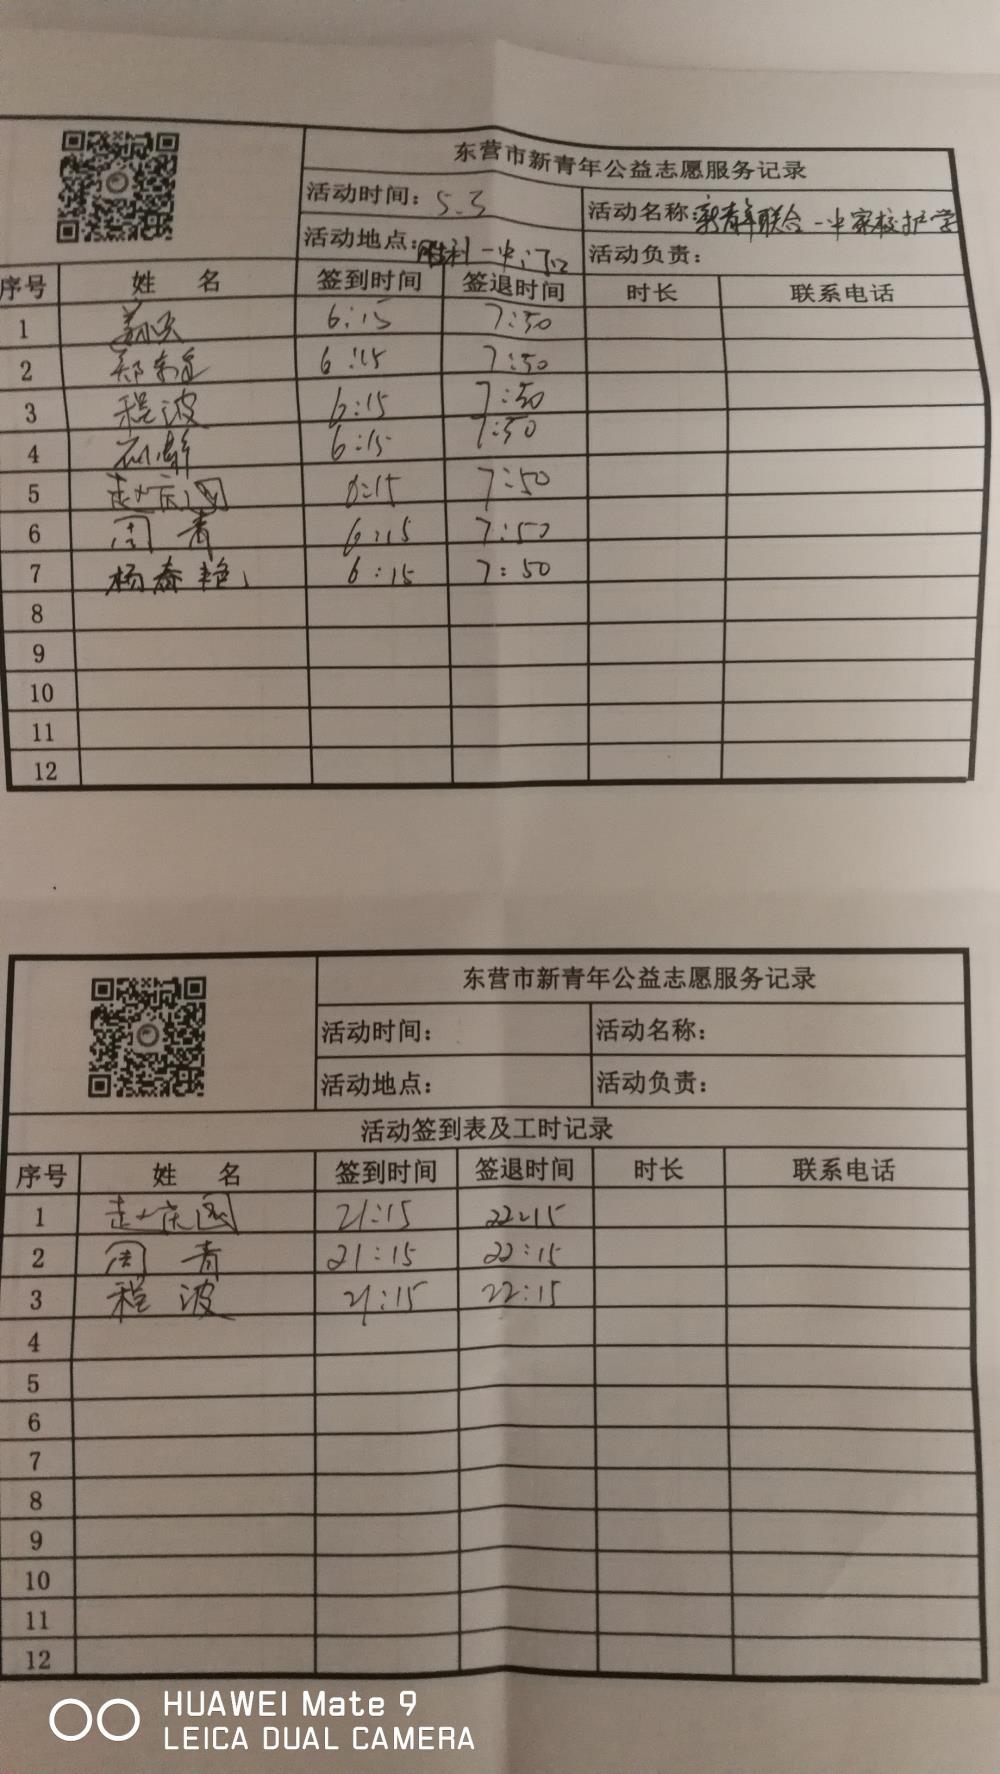 东营市新青年公益志愿服务记录
活动时间：5.3 活动名称：新青年联合一中家校护学
活动地点：胜利一中门口 活动负责：
序号 姓 名 签到时间 签退时间 时长 联系电话
1 6:15 7:50
2 郑 6:15 7:50
3 程波 6:15 7:50
4 静 6:15 7:50
5 赵庆国 6:15 7:50
6 周青 6:15 7:50
7 杨春艳 6:15 7:50
8
9
10
11
12
东营市新青年公益志愿服务记录
活动时间： 活动名称：
活动地点： 活动负责：
活动签到表及工时记录
序号 姓 名 签到时间 签退时间 时长 联系电话
1 赵庆国 21:15 22:15
2 周青 21:15 22:15
3 程波 21:15 22:15
4
5
6
7
8
9
10
11
12
HUAWEI Mate 9
LEICA DUAL CAMERA